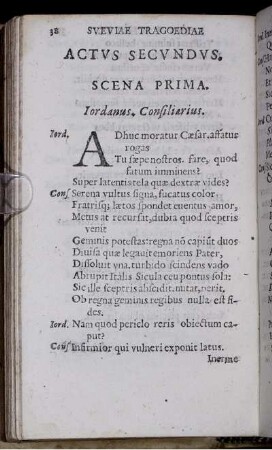 38 SVEVIAE TRAGOEDIAE
ACTVS SECVNDVS.
SCENA PRIMA.
Iordanus. Consiliarius.
Iord. ADhuc moratur Cæsar. affatur
rogas
Tu sæpe nostros. fare, quod
fatum imminens?
Super latentis tela quæ dextræ vides?
Cons Serena vultus signa, fucatus color,
Fratrisq; lætos spondet euentus amor,
Metus at recursat, dubra quod sceptris
venit
Geminis potestas: regna nō capiūt duos
Diuisa quæ legauit emoriens Pater,
Dissoluit vna, turbido scindens vado
Abrupit Italiā Sicula ceu pontus sola:
Sic ille sceptris abscidit. nutat, perit.
Ob regna geminis regibus nulla est fi-
des.
Iord. Nam quod periclo reris obiectum ca-
put?
Cōs Infirmior qui vulneri exponit latus.
Inerme